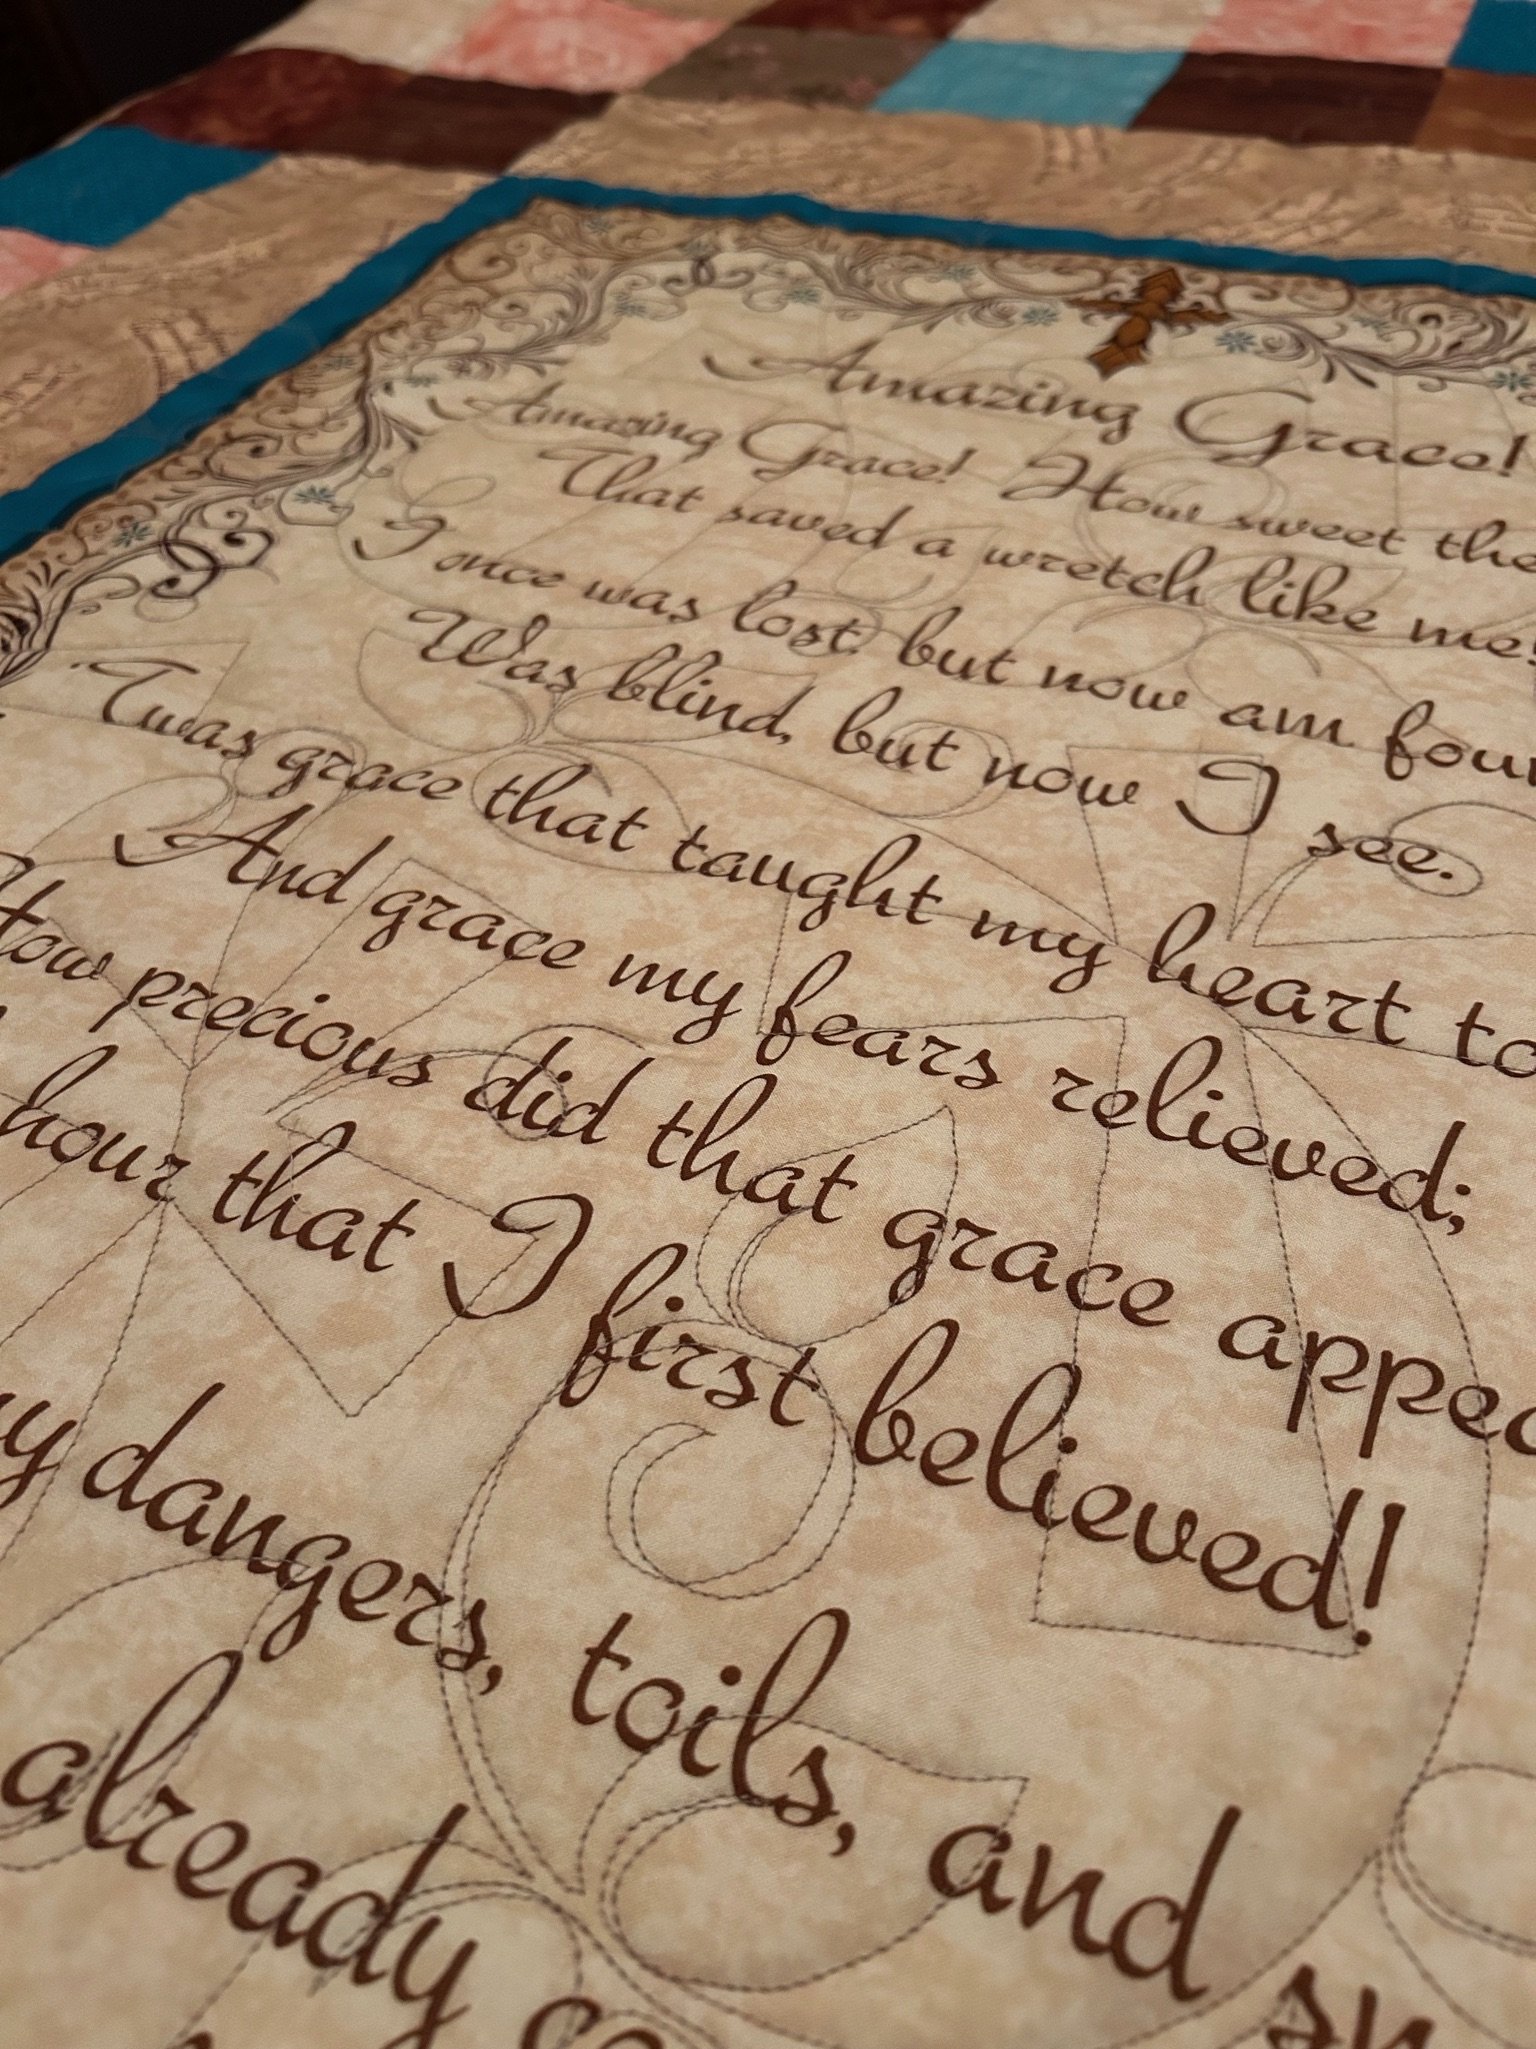 Amazing Grace!
Amazing Grace! How sweet the
That saved a wretch like me!
I once was lost but now am foun
Was blind, but now I see.
'Twas grace that taught my heart to
And grace my fears relieved;
How precious did that grace appea
hour that I first believed!
y dangers, toils, and sn
already co